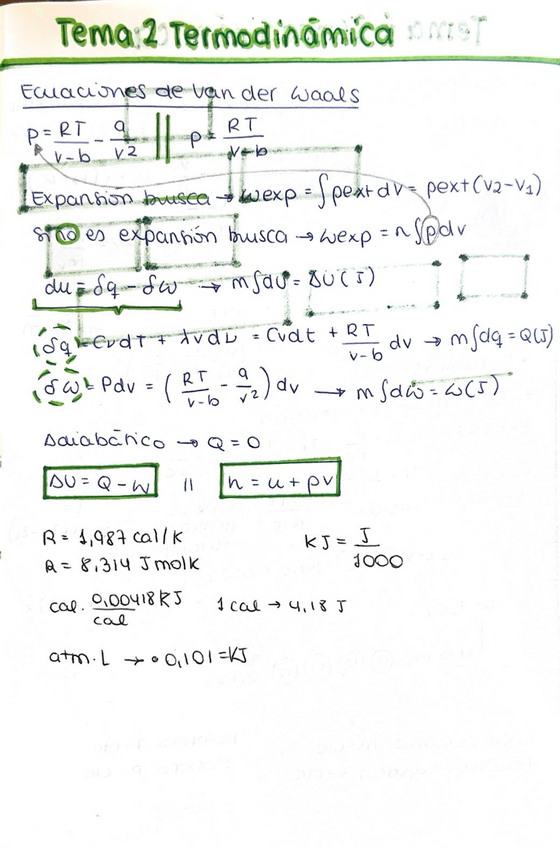 Tema 2 Termodinámica
Ecuaciones de van der Waals
P = RT/(v-b) - a/v² || p = RT/(v-b)
Expansión busca → wexp = ∫pext dv = pext(v2-v1)
Si no es expansión busca → wexp = n∫pdv
du = δq - δw → m∫du = ΔU(J)
δq = Cvdt + λvdv = Cvdt + RT/(v-b) dv → m∫dq = Q(J)
δw = Pdv = (RT/(v-b) - a/v²) dv → m∫dw = w(J)
Adiabático → Q = 0
ΔU = Q - W || h = u + pv
R = 1,987 cal/k KJ = J/1000
R = 8,314 Jmolk
cal. 0,00418KJ/cal 1 cal → 4,18 J
atm.L → • 0,101 = KJ